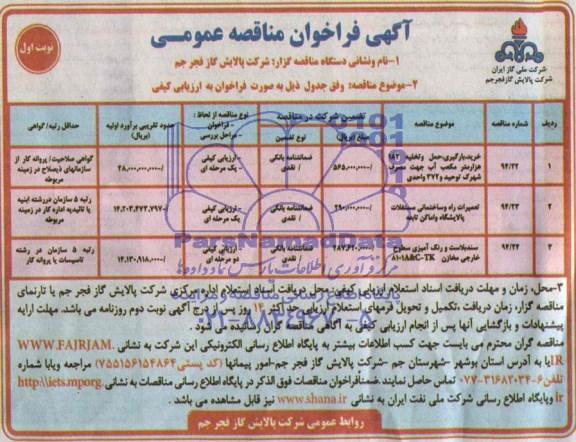 آگهی فراخوان مناقصه عمومی
نوبت اول
شرکت ملی گاز ایران
شرکت پالایش گاز فجر جم
۱-نام ونشانی دستگاه مناقصه گزار: شرکت پالایش گاز فجر جم
۲-موضوع مناقصه: وفق جدول ذیل به صورت فراخوان به ارزیابی کیفی
ردیف
شماره مناقصه
موضوع مناقصه
تضمین شرکت در مناقصه
مبلغ (ریال)
نوع تضمین
نوع مناقصه از لحاظ:
- فراخوان
- مراحل بررسی
حدود تقریبی برآورد اولیه (ریال)
حداقل رتبه/گواهی
۱
۹۴/۲۲
خرید،بارگیری،حمل وتخلیه ۱۸۲
هزارمتر مکعب آب جهت مصرف
شهرک توحید و۳۷۲ واحدی
۵۶۵,۰۰۰,۰۰۰/-
ضمانتنامه بانکی
/ نقدی
-ارزیابی کیفی
- یک مرحله ای
۲۸,۰۰۰,۰۰۰,۰۰۰/-
گواهی صلاحیت/ پروانه کار از
سازمانهای ذیصلاح در زمینه
مربوطه
۲
۹۴/۲۳
تعمیرات راه وساختمانی مستغلات
پالایشگاه واماکن تابعه
۲۹۰,۰۰۰,۰۰۰/-
ضمانتنامه بانکی
/ نقدی
-ارزیابی کیفی
- یک مرحله ای
۱۴,۲۰۳,۴۷۳,۷۹۷/-
رتبه ۵ سازمان دررشته ابنیه
یا تائیدیه اداره کار در زمینه
مربوطه
۳
۹۴/۲۴
سندبلاست و رنگ آمیزی سطوح
خارجی مخازن
۲۸۷,۶۲۰,۰۰۰/-
ضمانتنامه بانکی
/ نقدی
-ارزیابی کیفی
- دو مرحله ای
۱۴,۱۳۰,۹۱۸,۰۰۰/-
رتبه ۵ سازمان در رشته
تاسیسات یا پروانه کار
ParsNamadData
۳-محل، زمان و مهلت دریافت اسناد استعلام ارزیابی کیفی: محل دریافت اسناد استعلام اداره مرکزی شرکت پالایش گاز فجر جم یا تارنمای
مناقصه گزار، زمان دریافت ،تکمیل و تحویل فرمهای استعلام ارزیابی حداکثر ۱۴ روز پس از درج آگهی نوبت دوم روزنامه می باشد. مهلت ارایه
پیشنهادات و بازگشایی آنها پس از انجام ارزیابی کیفی به آگاهی مناقصه گران رسانده می شود .
مناقصه گران محترم می بایست جهت کسب اطلاعات بیشتر به پایگاه اطلاع رسانی الکترونیکی این شرکت به نشانی WWW.FAJRJAM.
IRیا به آدرس استان بوشهر -شهرستان جم -شرکت پالایش گاز فجر جم-امور پیمانها (کد پستی۷۵۵۱۵۶۱۵۴۸۶۴) مراجعه ویابا شماره
تلفن۶-۰۷۷-۳۱۶۸۲۰۳۴ تماس حاصل نمایند.ضمنافراخوان مناقصات فوق الذکر در پایگاه اطلاع رسانی مناقصات به نشانی http:\\iets.mporg.
ir وپایگاه اطلاع رسانی شرکت ملی نفت ایران به نشانی www.shana.ir نیز قابل مشاهده می باشد .
روابط عمومی شرکت پالایش گاز فجر جم